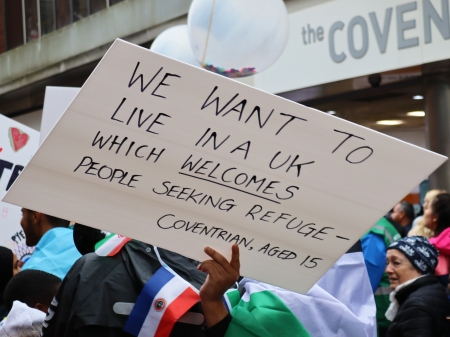 the COVEN
WE WANT TO
LIVE IN A UK
WHICH WELCOMES
PEOPLE SEEKING REFUGE -
COVENTRIAN, AGED 15